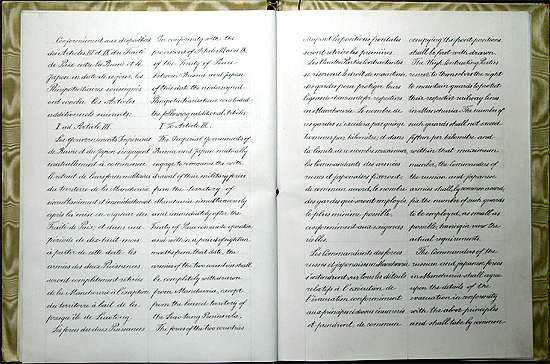 Conformément aux dispositions
des Articles III et IX du Traité
de Paix entre la Russie et le
Japon en date de ce jour, les
Plénipotentiaires soussignés
ont conclu les Articles
additionnels suivants:
I ad Article III.
Les Gouvernements Impériaux
de Russie et du Japon s'engagent
mutuellement à commencer
le retrait de leurs forces militaires
du territoire de la Mandchourie
simultanément et immédiatement
après la mise en vigueur du
Traité de Paix; et dans une
période de dix-huit mois
à partir de cette date les
armées des deux Puissances
seront complètement retirées
de la Mandchourie à l'exception
du territoire à bail de la
presqu'île de Liaotong.
Les forces des deux Puissances
In conformity with the
provisions of Articles III and IX
of the Treaty of Peace
between Russia and Japan
of this date, the undersigned
Plenipotentiaries concluded
the following additional Articles:
I to Article III.
The Imperial Governments of
Russia and Japan mutually
engage to commence the with-
drawal of their military forces
from the territory of
Manchuria simultaneously
and immediately after the
Treaty of Peace comes into operation
and within a period of eighteen
months from that date, the
armies of the two countries shall
be completely withdrawn
from Manchuria, except
from the leased territory of
the Liao-tung Peninsula.
The forces of the two countries
occupant les positions frontales
seront retirées les premières.
Les Hautes Parties Contractantes
se réservent le droit de maintenir
des gardes pour protéger leurs
lignes de chemin de fer respectives
en Mandchourie. Le nombre de
ces gardes n'excédera pas quinze
hommes par kilomètre; et dans
la limite de ce nombre maximum,
les commandants des armées
russes et japonaises fixeront,
de commun accord, le nombre
des gardes qui seront employés,
le plus minime possible,
conformément aux exigences
réelles.
Les Commandants des forces
russes et japonaises en Mandchourie
s'entendront sur tous les détails
relatifs à l'exécution de
l'évacuation conformément
aux principes ci-dessus énumérés
et prendront, de commun
occupying the front positions
shall be first withdrawn.
The High Contracting Parties
reserve to themselves the right
to maintain guards to protect
their respective railway lines
in Manchuria. The number of
such guards shall not exceed
fifteen per kilometre and
within that maximum
number, the Commanders of
the Russian and Japanese
armies shall, by common accord,
fix the number of such guards
to be employed, as small as
possible, having in view the
actual requirements.
The Commanders of the
Russian and Japanese forces
in Manchuria shall agree
upon the details of the
evacuation in conformity
with the above principles
and shall take by common